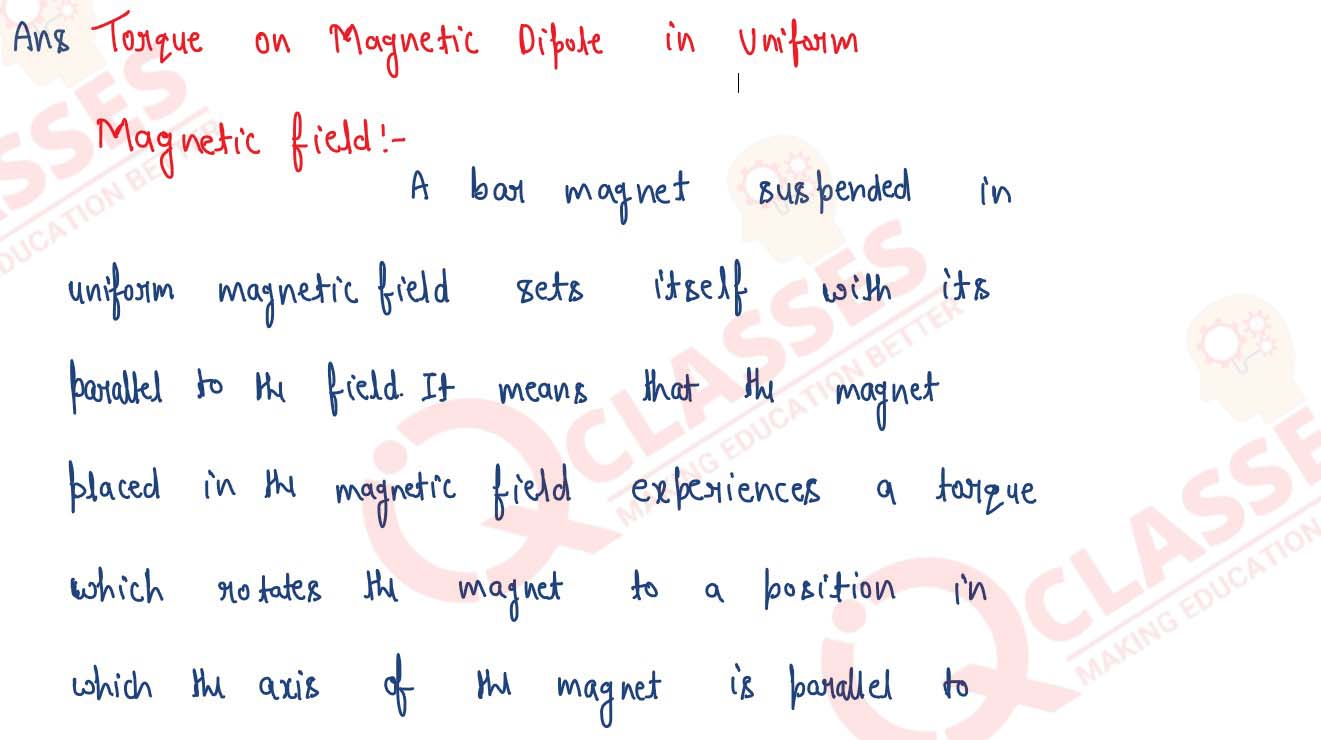 Ans Torque on Magnetic Dipole in Uniform
Magnetic field:-
A bar magnet suspended in
uniform magnetic field sets itself with its
parallel to the field. It means that the magnet
placed in the magnetic field experiences a torque
which rotates the magnet to a position in
which the axis of the magnet is parallel to
SSES
EDUCATION BETTER
IQ CLASSES
MAKING EDUCATION BETTER
IQ CLASSES
MAKING EDUCATION